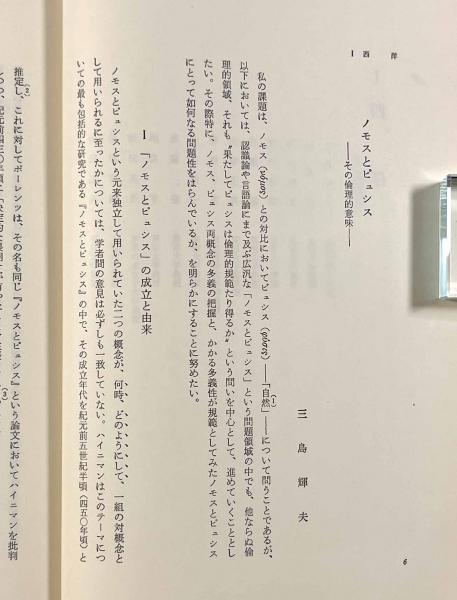 I 西洋
ノモスとピュシス
——その倫理的意味——
三島輝夫
私の課題は、ノモス（νόμος）との対比においてピュシス（φύσις）——「自然」(1)——について問うことであるが、
以下においては、認識論や言語論にまで及ぶ広汎な「ノモスとピュシス」という問題領域の中でも、他ならぬ倫
理的領域、それも〝果たしてピュシスは倫理的規範たり得るか〟という問いを中心として、進めていくこととし
たい。その際特に、ノモス、ピュシス両概念の多義の把握と、かかる多義性が規範としてみたノモスとピュシス
にとって如何なる問題性をはらんでいるか、を明らかにすることに努めたい。
I 「ノモスとピュシス」の成立と由来
ノモスとピュシスという元来独立して用いられていた二つの概念が、何時、どのようにして、一組の対概念と
して用いられるに至ったかについては、学者間の意見は必ずしも一致していない。ハイニマンはこのテーマにつ
いての最も包括的な研究である『ノモスとピュシス』の中で、その成立年代を紀元前五世紀半頃（四五〇年頃）と
推定し(2)、これに対してポーレンツは、その名も同じ『ノモスとピュシス』という論文においてハイニマンを批判
(3)
6